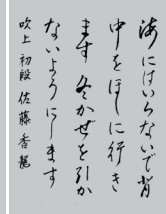 海にはいらないで背
中をほしに行き
ます 冬かぜを引か
ないようにします
吹上 初段 佐藤香龍